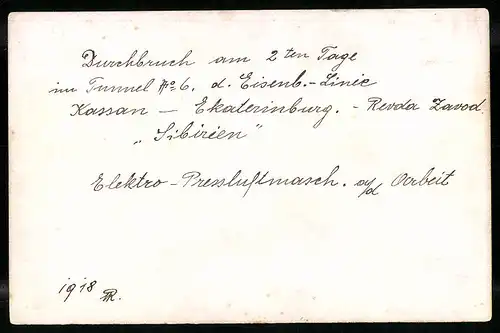 Durchbruch am 2ten Tage
im Tunnel No 6. d. Eisenb.-Linie
Kassan — Ekaterinburg. - Revda Zavod.
„Sibirien"
Elektro-Pressluftmasch. a/d Arbeit
1918 R.